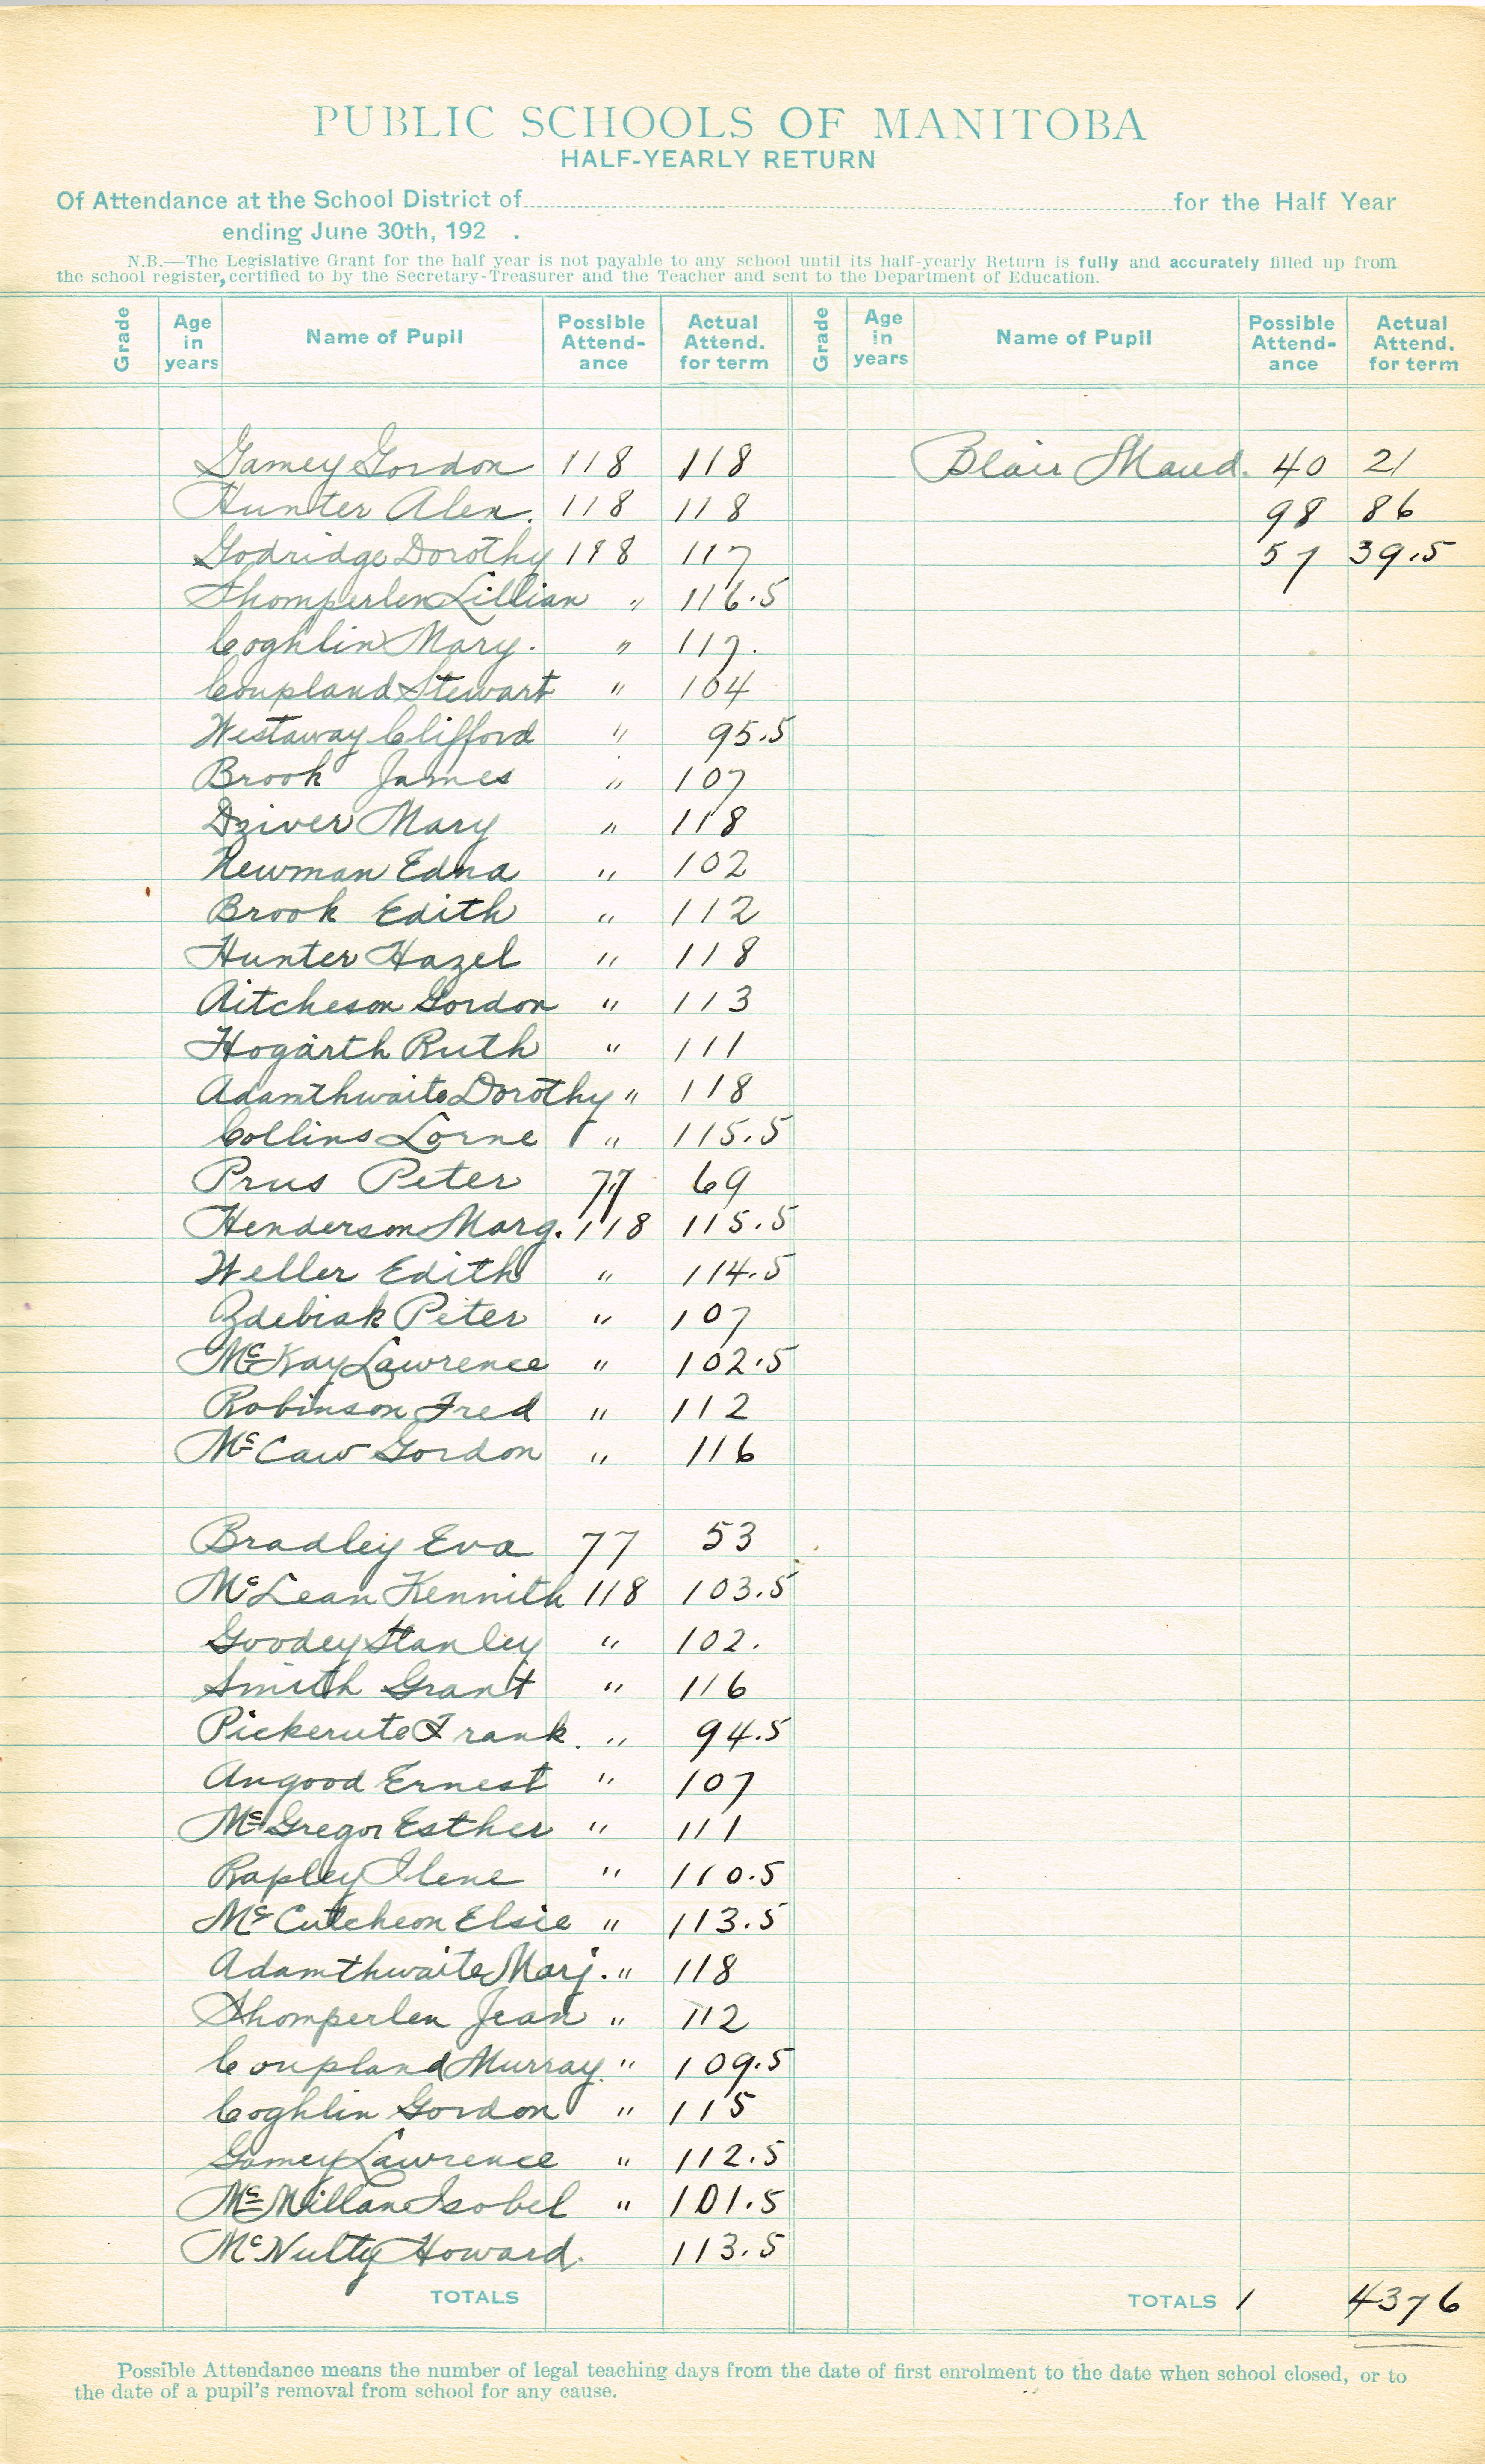 PUBLIC SCHOOLS OF MANITOBA
HALF-YEARLY RETURN
Of Attendance at the School District of for the Half Year
ending June 30th, 192 .
N.B.—The Legislative Grant for the half year is not payable to any school until its half-yearly Return is fully and accurately filled up from
the school register, certified to by the Secretary-Treasurer and the Teacher and sent to the Department of Education.
Grade Age in years Name of Pupil Possible Attend-ance Actual Attend. for term Grade Age in years Name of Pupil Possible Attend-ance Actual Attend. for term
Gamey Gordon 118 118 Blair Maud. 40 21
Hunter Alex. 118 118 98 86
Godridge Dorothy 118 117 57 39.5
Thomperlen Lillian " 116.5
Coghlin Mary. " 117.
Coupland Stewart " 104
Westaway Clifford " 95.5
Brook James " 107
Dziver Mary " 118
Newman Edna " 102
Brook Edith " 112
Hunter Hazel " 118
Aitcheson Gordon " 113
Hogarth Ruth " 111
Adamthwaite Dorothy " 118
Collins Lorne " 115.5
Prus Peter 77 69
Henderson Marg. 118 115.5
Weller Edith " 114.5
Zdebiak Peter " 107
McKay Lawrence " 102.5
Robinson Fred " 112
McCaw Gordon " 116
Bradley Eva 77 53
McLean Kennith 118 103.5
Goodey Stanley " 102.
Smith Grant " 116
Frank. " 94.5
Angood Ernest " 107
McGregor Esther " 111
Rapley Ilene " 110.5
McCutcheon Elsie " 113.5
Adamthwaite Marj. " 118
Thomperlen Jean " 112
Coupland Murray. " 109.5
Coghlin Gordon " 115
Gamey Lawrence " 112.5
McMillan Isobel " 101.5
McNulty Howard. 113.5
TOTALS TOTALS 1 4376
Possible Attendance means the number of legal teaching days from the date of first enrolment to the date when school closed, or to
the date of a pupil's removal from school for any cause.